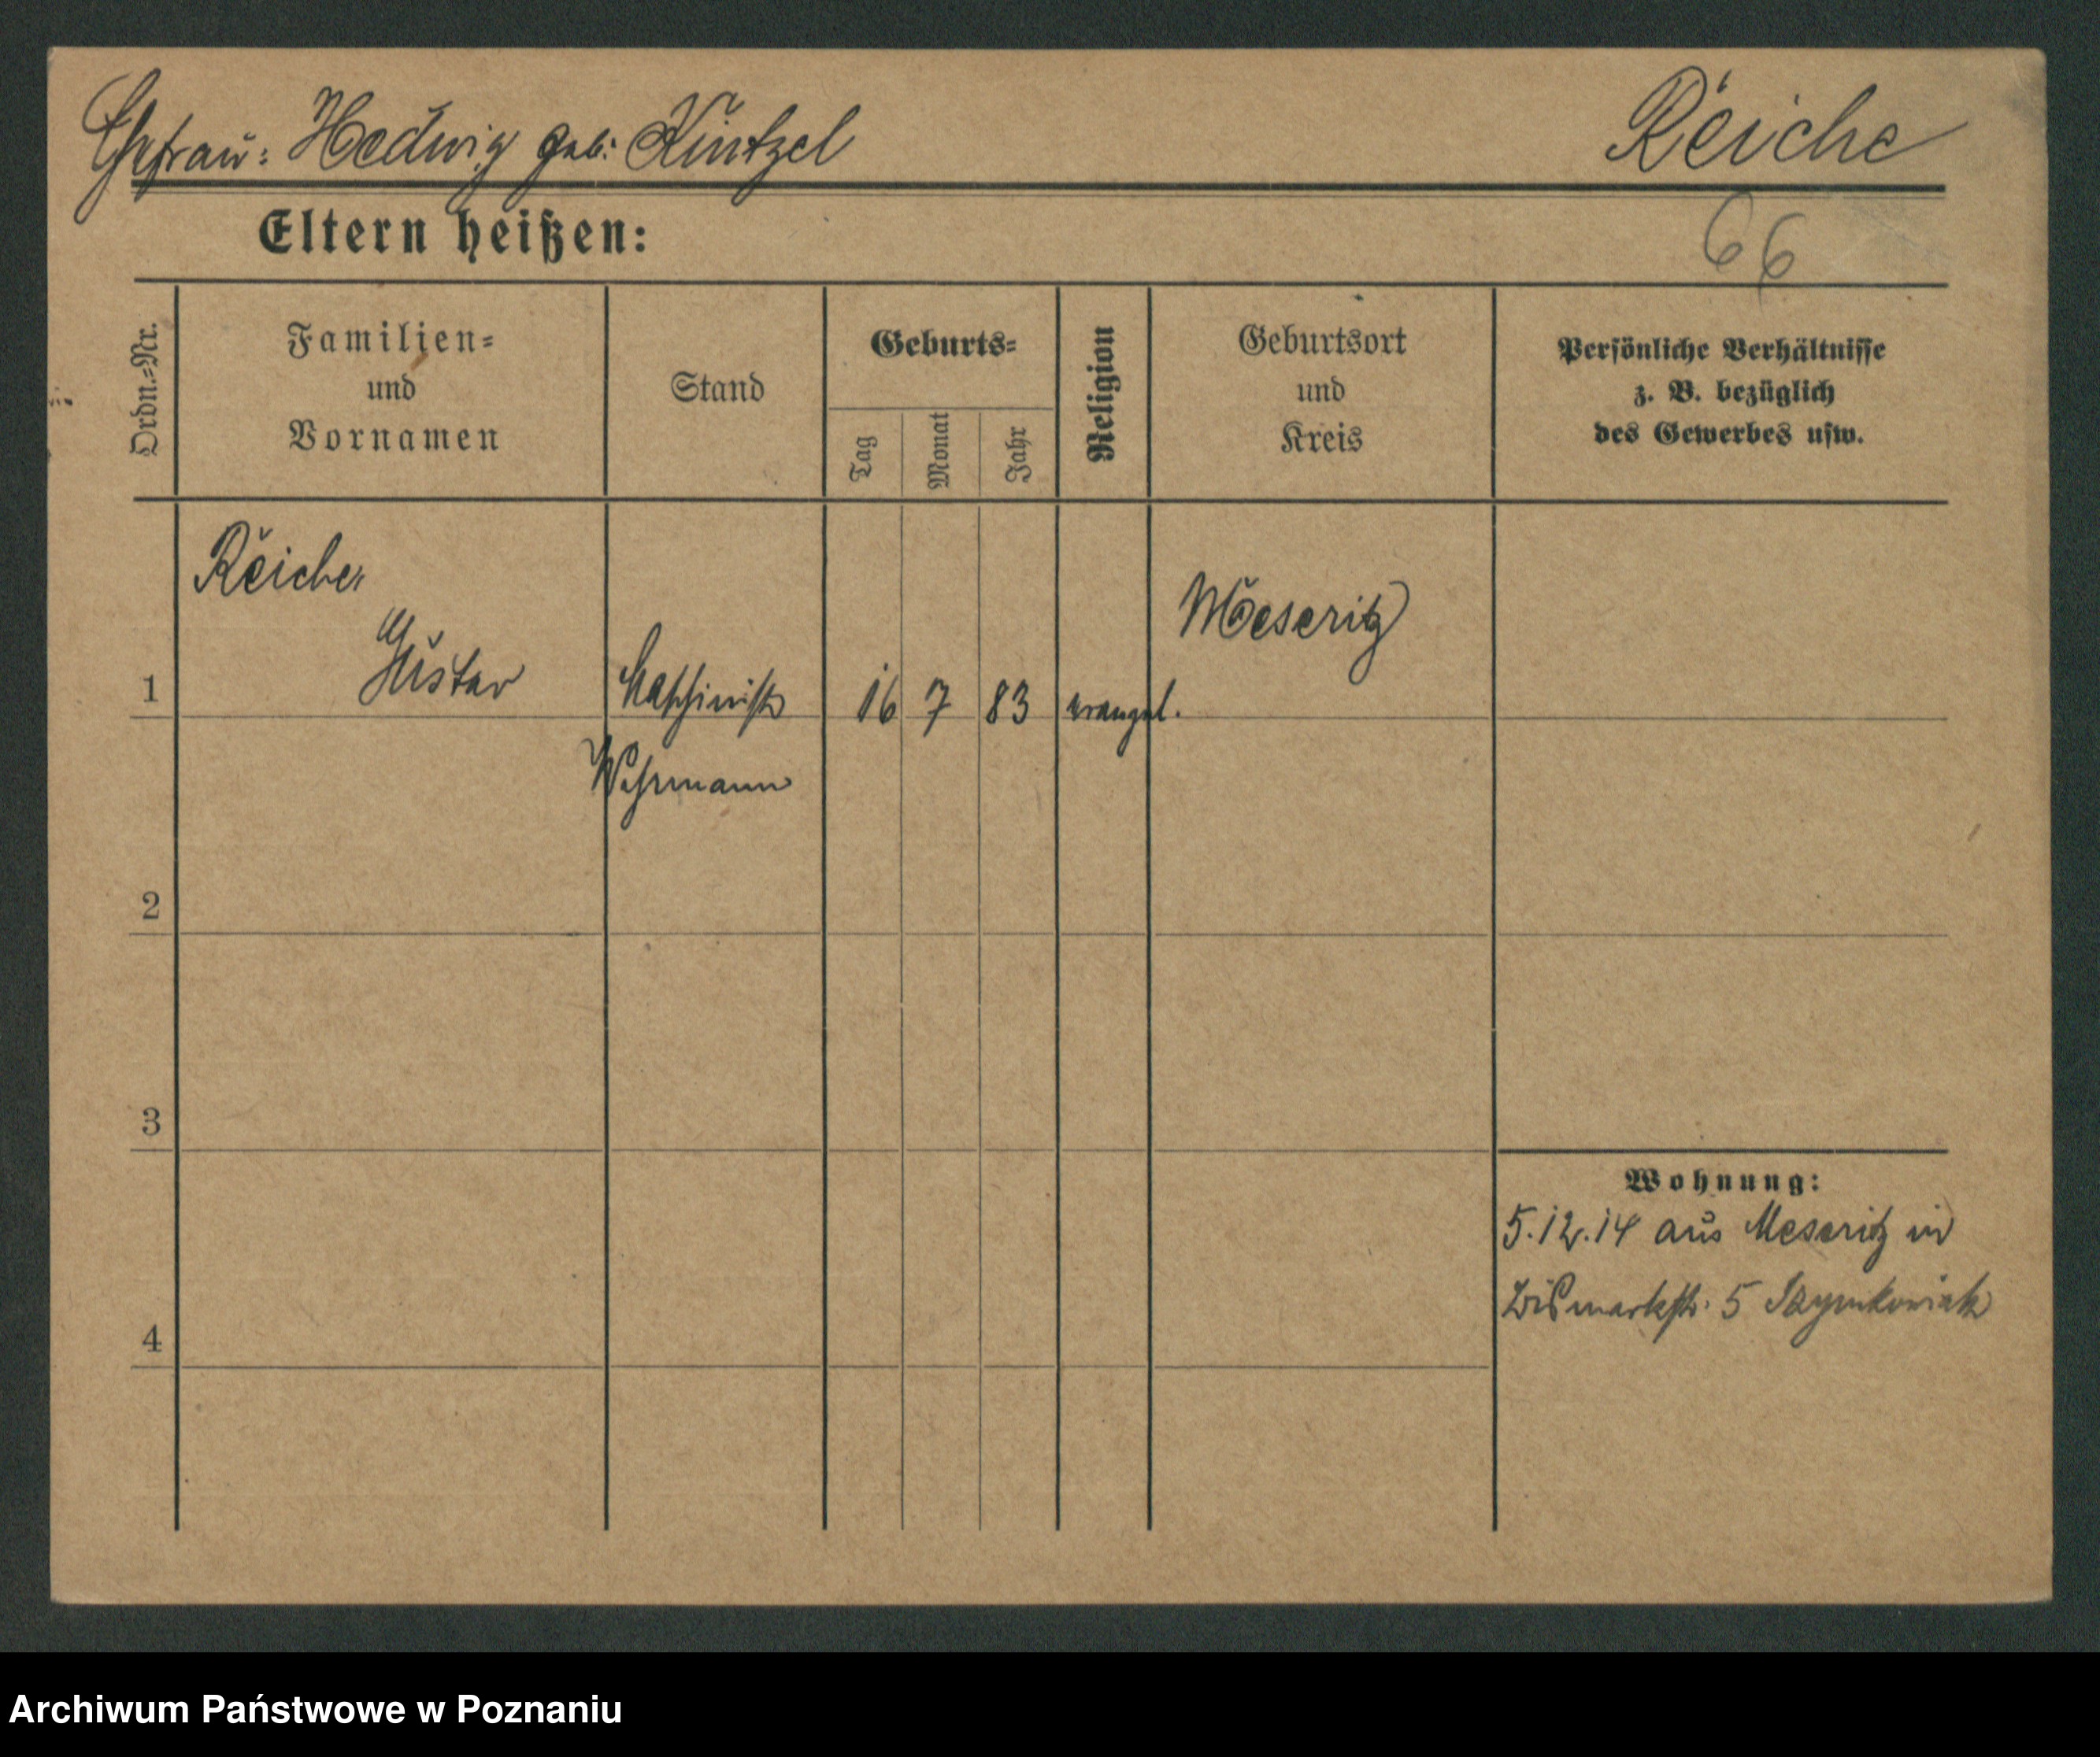 Ehefrau: Hedwig geb: Kintzel
Reiche
66
Eltern heißen:
Ordn.-Nr.
Familien-
und
Vornamen
Stand
Geburts-
Tag
Monat
Jahr
Religion
Geburtsort
und
Kreis
Persönliche Verhältnisse
z. B. bezüglich
des Gewerbes usw.
Reiche,
Gustav
1
Maschinist
16
7
83
evangel.
Meseritz
Wehrmann
2
3
4
Wohnung:
5.12.14 aus Meseritz in
Bismarkstr. 5 Szymkowiak
Archiwum Państwowe w Poznaniu